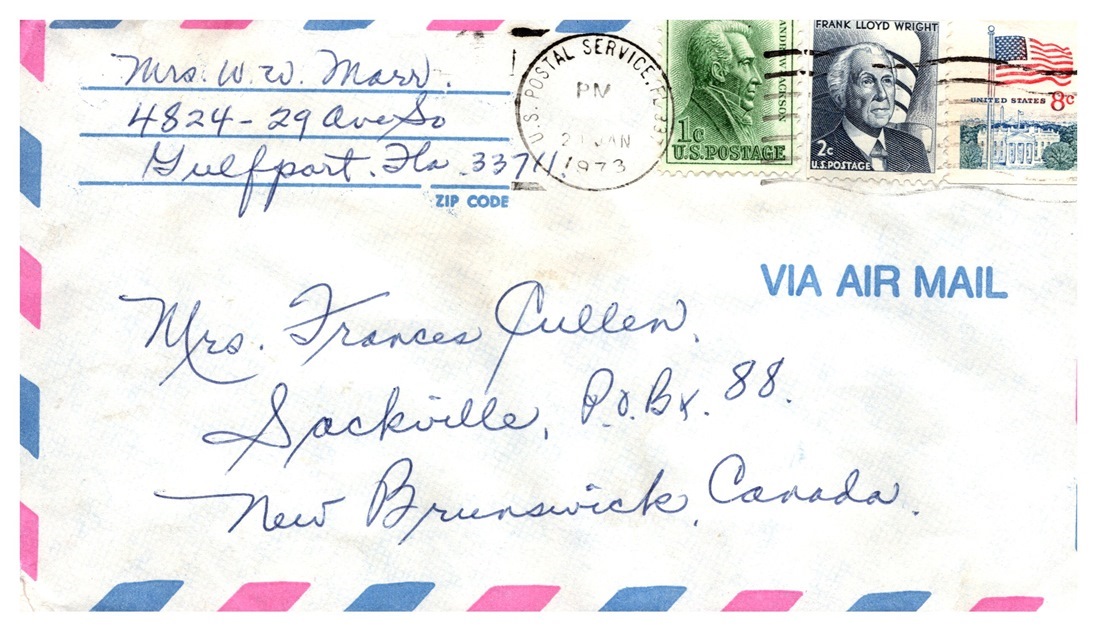 Mrs. W. W. Marr.
4824-29 Ave So
Gulfport. Fla. 33711.
ZIP CODE
U.S. POSTAL SERVICE, FL
PM
JAN
1973
ANDREW JACKSON
1c
U.S.POSTAGE
FRANK LLOYD WRIGHT
2c
U.S.POSTAGE
UNITED STATES 8c
VIA AIR MAIL
Mrs. Frances Cullen,
Sackville, P.O.Bx. 88.
New Brunswick, Canada.